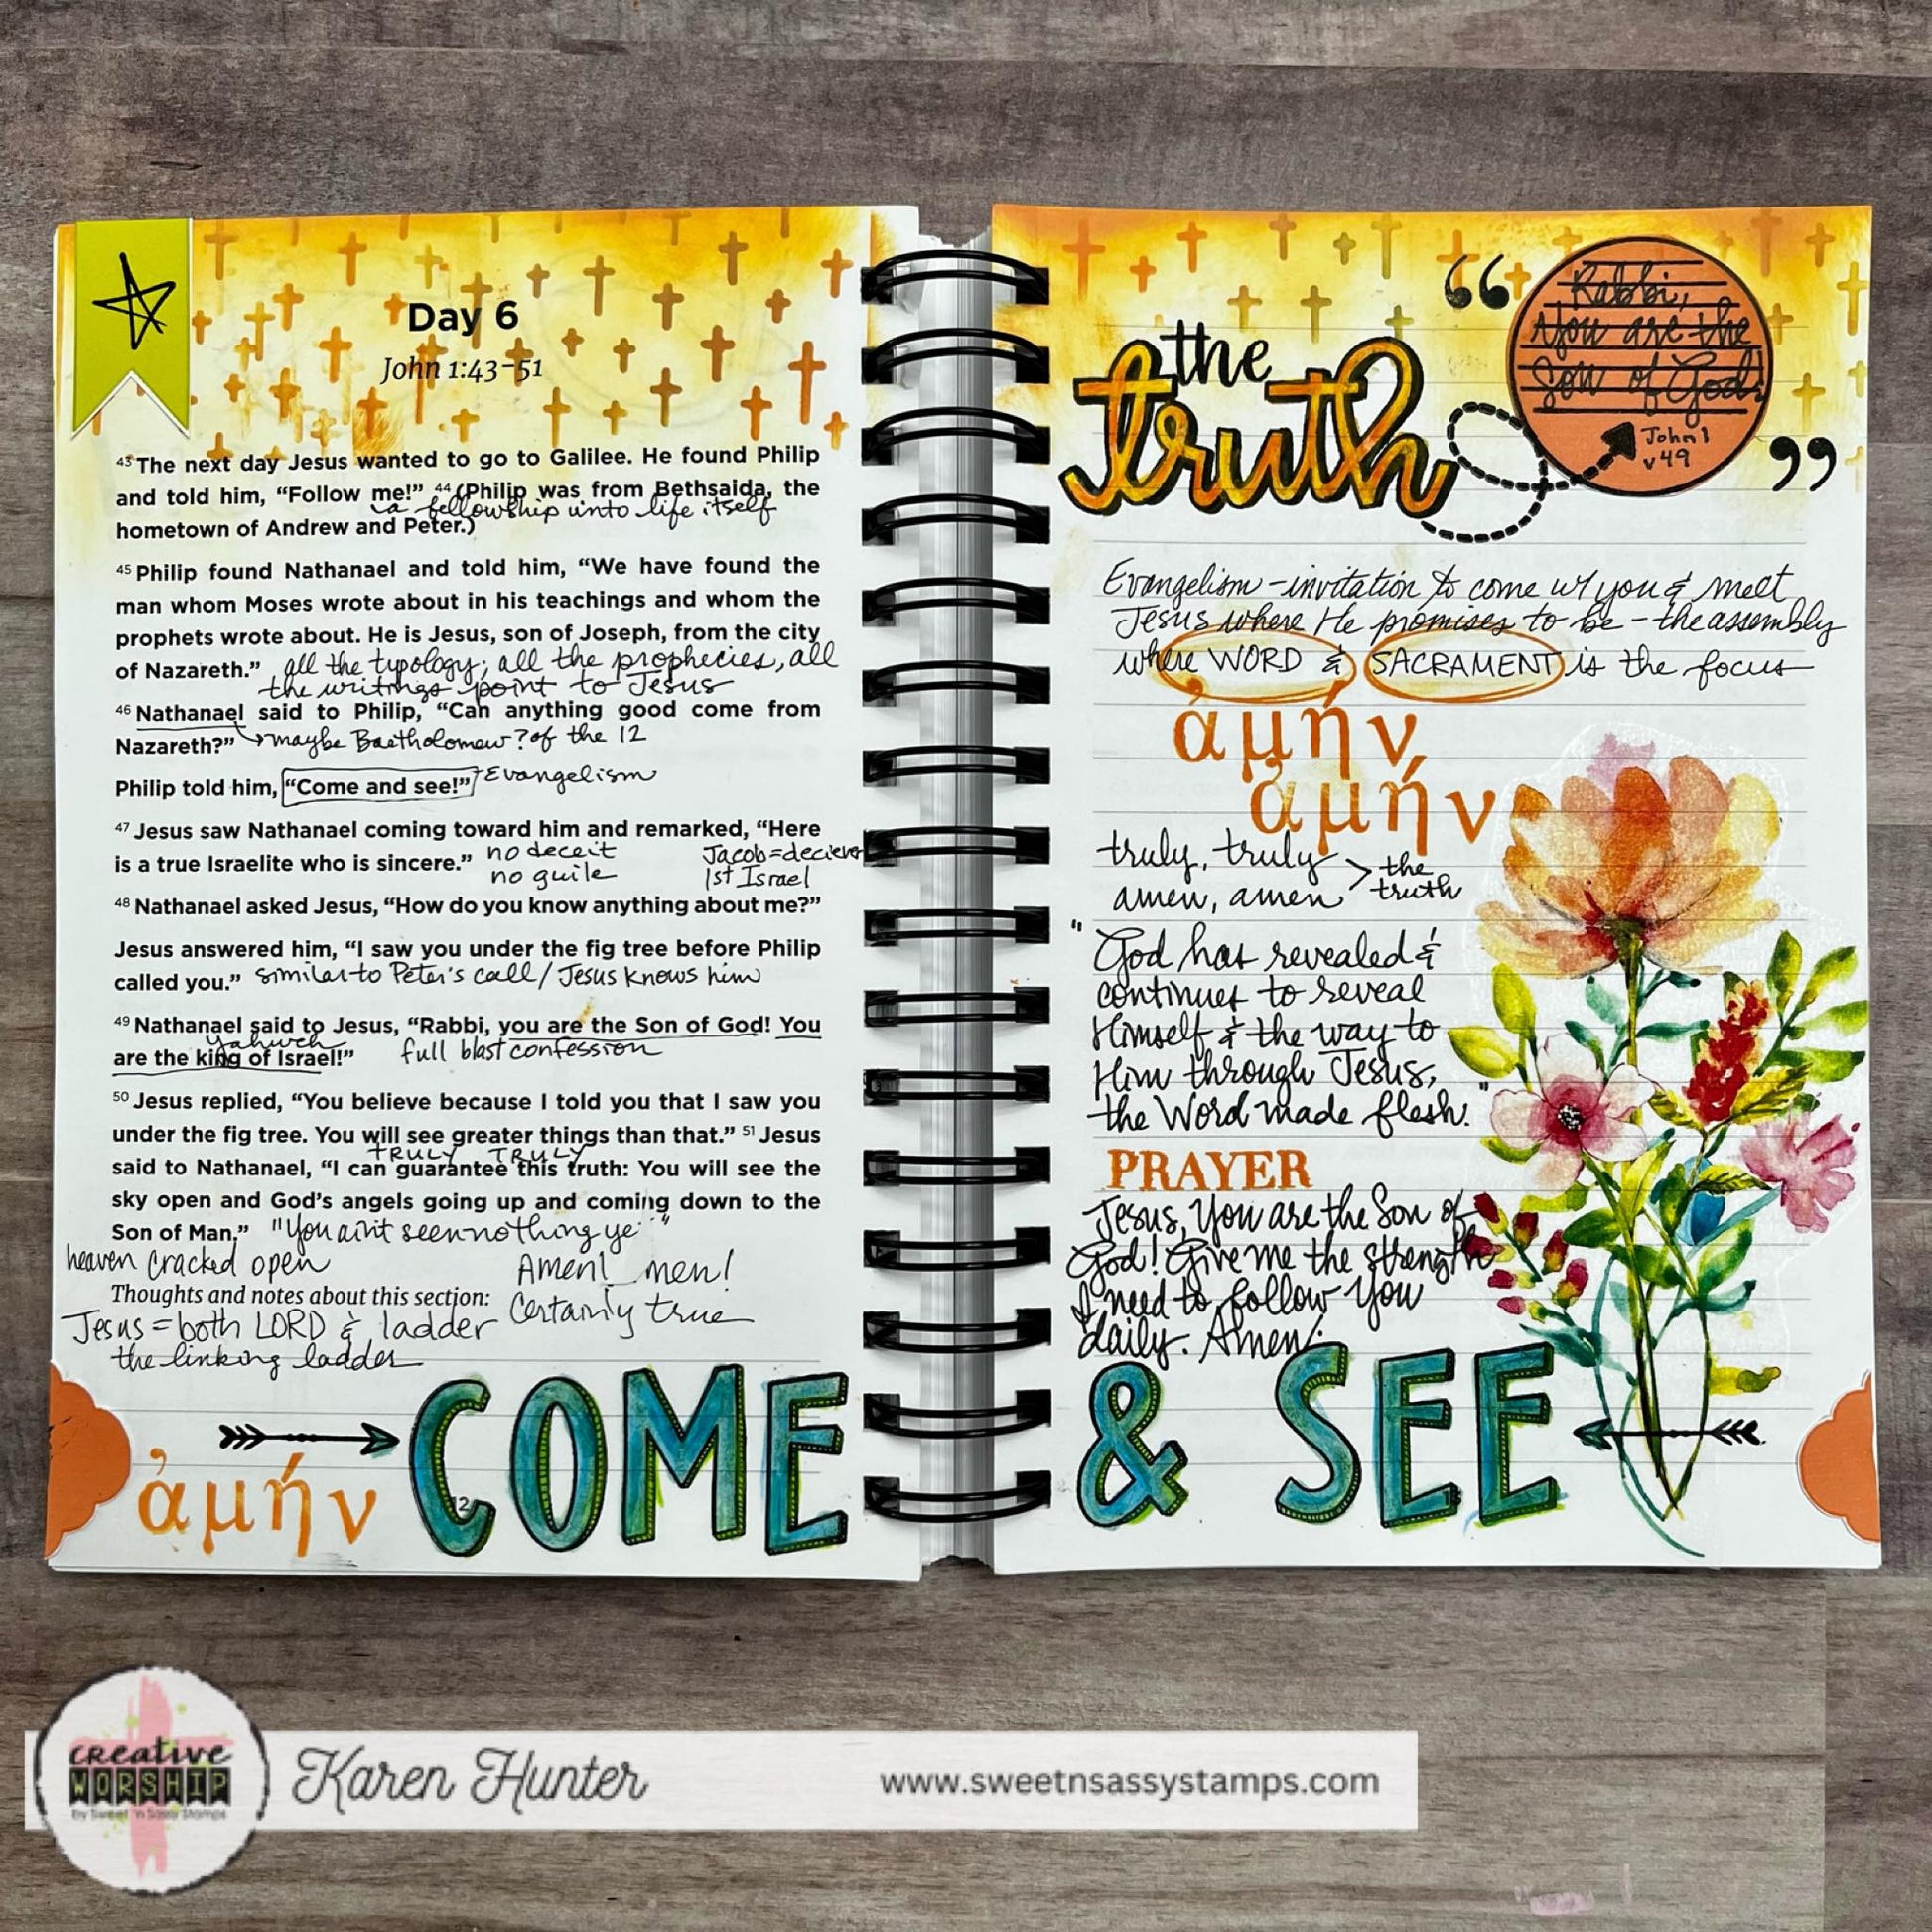 Day 6
John 1:43-51
43 The next day Jesus wanted to go to Galilee. He found Philip
and told him, “Follow me!” 44 (Philip was from Bethsaida, the
a fellowship unto life itself
hometown of Andrew and Peter.)
45 Philip found Nathanael and told him, “We have found the
man whom Moses wrote about in his teachings and whom the
prophets wrote about. He is Jesus, son of Joseph, from the city
of Nazareth.” all the typology; all the prophecies, all
the writings point to Jesus
46 Nathanael said to Philip, “Can anything good come from
Nazareth?” maybe Bartholomew? of the 12
Philip told him, “Come and see!” Evangelism
47 Jesus saw Nathanael coming toward him and remarked, “Here
is a true Israelite who is sincere.” no deceit Jacob=deciever
no guile 1st Israel
48 Nathanael asked Jesus, “How do you know anything about me?”
Jesus answered him, “I saw you under the fig tree before Philip
called you.” similar to Peter's call/Jesus knows him
49 Nathanael said to Jesus, “Rabbi, you are the Son of God! You
Yahweh
are the king of Israel!” full blast confession
50 Jesus replied, “You believe because I told you that I saw you
under the fig tree. You will see greater things than that.” 51 Jesus
TRULY TRULY
said to Nathanael, “I can guarantee this truth: You will see the
sky open and God’s angels going up and coming down to the
Son of Man.” "You ain't seen nothing ye"
heaven cracked open Amen! men!
Thoughts and notes about this section: Certainly true
Jesus = both LORD & ladder
the linking ladder
ἀμήν
12
COME
the
truth
“
Rabbi,
You are the
Son of God!
John 1
v49
”
Evangelism - invitation to come w/ you & meet
Jesus where He promises to be - the assembly
where WORD & SACRAMENT is the focus
ἀμήν
ἀμήν
truly, truly > the
amen, amen truth
"God has revealed &
continues to reveal
Himself & the way to
Him through Jesus,
the Word made flesh."
PRAYER
Jesus, You are the Son of
God! Give me the strength
I need to follow You
daily. Amen.
& SEE
creative
WORSHIP
by Sweet 'n Sassy Stamps
Karen Hunter
www.sweetnsassystamps.com